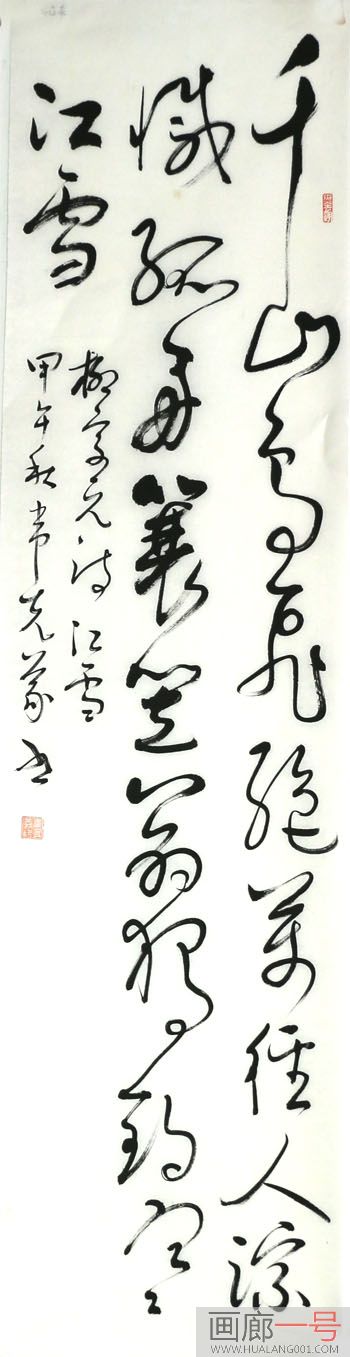 千山鳥飛絕萬徑人踪
滅孤舟蓑笠翁獨釣寒
江雪
柳宗元诗江雪
甲午秋常克書
画廊一号
WWW.HUALANG001.COM